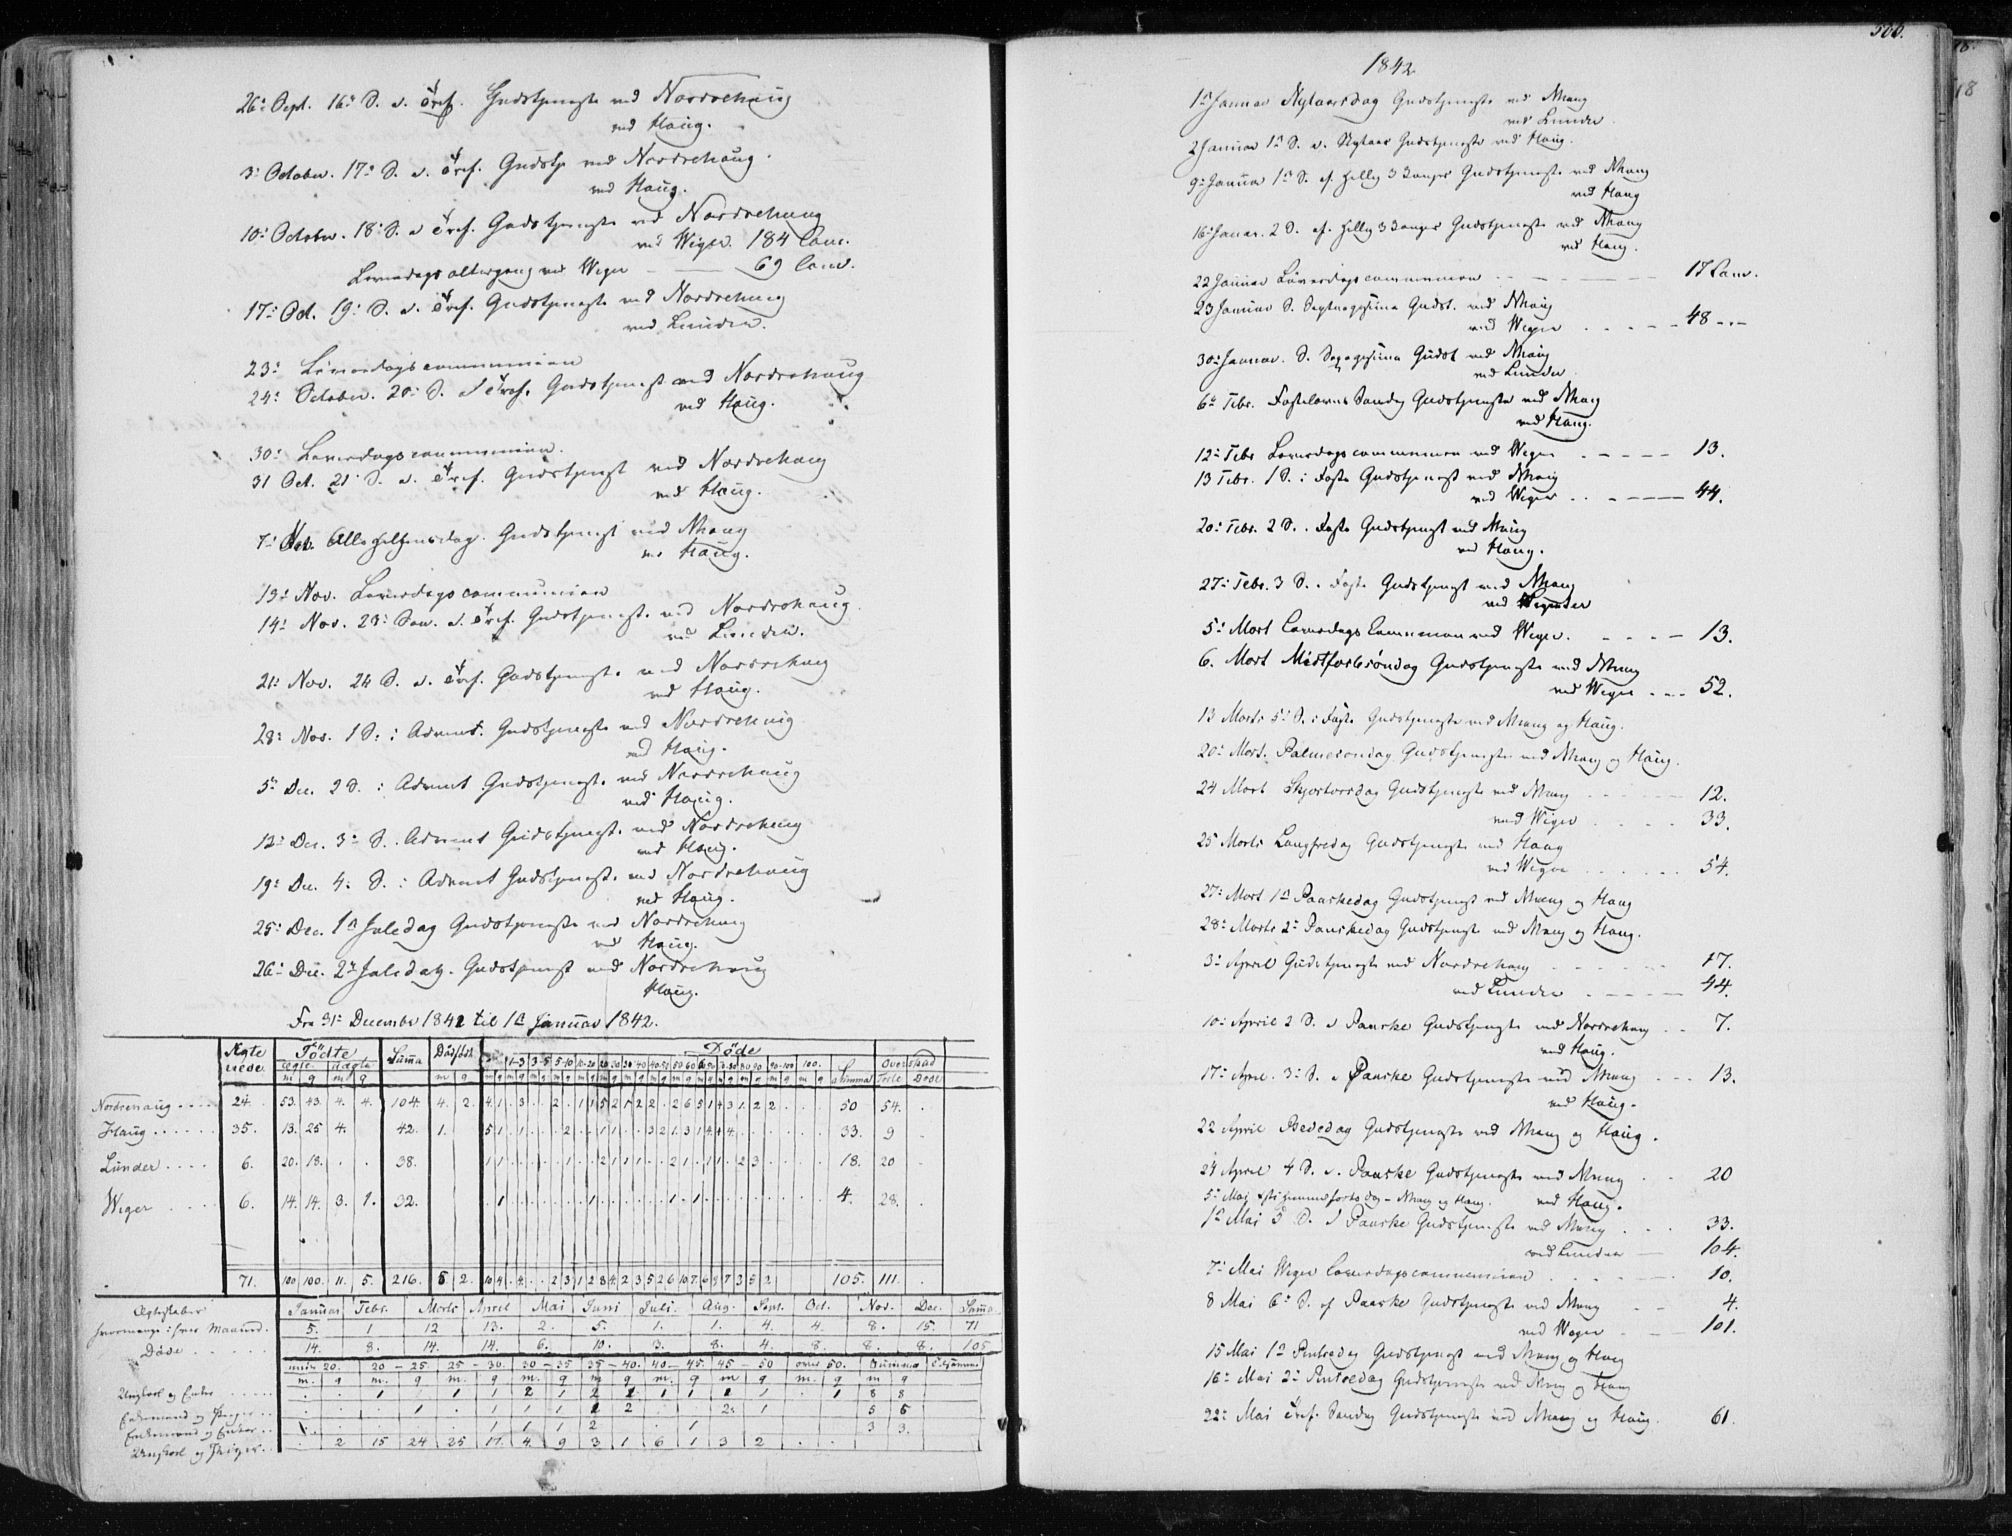 26de Sept. 16de S. e. Tref. Gudstjeneste ved Norderhoug
ved Haug.
3. October. 17de S. e. Tref. Gudstj. ved Norderhoug.
ved Haug.
10de October. 18de S. e. Tref. Gudstjeneste ved Norderhoug
ved Wiger. 184 Com.
Løverdags altergang ved Weger — 69 Com.
17de Oct. 19de S. e. Tref. Gudstjeneste ved Norderhoug
ved Lunder.
23de Løverdagscommunion
24de October. 20de S. e. Tref. Gudstjenest ved Norderhoug
ved Haug.
30de Løverdagscommunion.
31 Oct. 21 S. e. Tref. Gudstjenest ved Norderhoug
ved Haug.
7de Nov. Allehelgensdag. Gudstjenest ved Nhoug
ved Haug.
13de Nov. Løverdagscommunion
14de Nov. 23de Søn. e. Tref. Gudstjenest. ved Norderhoug
ved Lunder.
21de Nov. 24 S. e. Tref. Gudstjeneste. ved Norderhoug
ved Haug.
28de Nov. 1 S. i Advent. Gudstjeneste ved Norderhoug
ved Haug.
5te Dec. 2 S. i Advent Gudstjeneste ved Norderhoug
ved Haug.
12te Dec. 3de S. Advent Gudstjenest. ved Norderhoug
ved Haug.
19de Dec. 4. S. i Advent Gudstjeneste. ved Norderhoug
ved Haug.
25de Dec. 1ste Juledag Gudstjeneste ved Norderhoug
ved Haug.
26de Dec. 2den Juledag. Gudstjenest ved Norderhoug
Haug.
Fra 31te December 1841 til 1ste Januar 1842.
Ægte viede. Fødte Summa Dødfødte Døde Overskud
ægte uægte 1-3 3-5 5-10 10-20 Summa Fødte Døde
Norderhoug 24. 53. 43. 4. 4. 104. 4. 2. 50 54.
Haug 35. 13. 25 4. 42. 1. 33. 9
Lunder 6. 20. 18. 38. 18. 20
Weger 6. 14. 14. 3. 1. 32. 4. 28.
71. 100 100. 11. 5. 216. 5 2. 105. 111.
Ægteskaber Januar Febr. Marts April Mai Juni Juli. Aug. Sept. Oct. Nov. Dec. Summa
hvormange i hver Maaned. 5. 1 12 13. 2. 5. 1. 1. 4. 4. 8. 15. 71
Døde 14. 8. 14. 14. 6. 10. 3. 8. 4. 8. 8. 8. 105
under 20. 20-25 25-30. 30-35 35-40. 40-45. 45-50 over 50. Summa
m. q m. q m. q m. q m. q m. q m q m. q m q
Ungkarl og Enker 1 1 1 2 1 2 1 1 1 1 8 8
Enkemænd og Piger 1 1 1 1 2 2 1 5 5
Enkemænd og Enker 1 1 1 2 1 3 3.
Ungkarl og Piger 2 15 24 25 17. 4 9 3 1 6 1 3 2
506.
1842
1ste Januar Nytaarsdag Gudstjeneste ved Nhoug
ved Lunder.
2 Januar 1ste S. e. Nytaar Gudstjeneste ved Haug.
9de Januar 1ste S. ef. Hellig 3 Konger Gudstjeneste ved Nhoug
ved Haug
16de Januar. 2 S. ef. Hellig 3 Konger Gudstjeneste ved Nhoug
ved Haug.
22 Januar Løverdagscommunion — 17 Com.
23 Januar S. Septuagesima Gudst. ved Nhoug
ved Weger — 48
30te Januar. S. Sexagesima Gudst ved Nhoug
ved Lunder
6te Febr. Fastelavns Søndag Gudstjeneste ved Nhoug
ved Haug.
12te Febr Løverdagscommunion ved Weger — 13.
13 Febr. 1 S. i Faste Gudstjenest ved Nhoug
ved Weger — 44.
20de Febr. 2 S. Faste Gudstjenest ved Nhoug
ved Haug.
27de Febr. 3 S. Faste Gudstjenest ved Nhoug
ved
5te Mart Løverdags Communion ved Weger. — 13.
6. Mart Midfastesøndag Gudstjeneste ved Nhoug
ved Weger — 52.
13 Marts 5te S. i Faste Gudstjeneste ved Nhoug og Haug.
20de Mart. Palmesøndag Gudstjeneste ved Nhoug og Haug.
24 Mart Skjertorsdag Gudstjeneste ved Nhoug — 12.
ved Wiger — 33.
25 Marts Langfredag Gudstjeneste ved Haug
ved Weger — 54.
27de Mart 1ste Paaskedag Gudstjenest ved Nhoug og Haug
28de Marts 2den Paaskedag Gudstjenest ved Nhoug og Haug.
3de April Gudstjeneste ved Norderhoug — 17.
ved Lunder — 44.
10de April 2 S. e Paaske Gudstjeneste ved Norderhoug — 7.
ved Haug.
17de April. 3de S. e Paaske Gudstjeneste ved Nhoug — 13.
ved Haug.
22 April Bededag Gudstjeneste ved Nhoug og Haug.
24 April 4 S. e. Paaske Gudstjeneste ved Nhoug — 20
5te Mai Christi himmelfartsdag – Nhoug og Haug. ved Haug.
1ste Mai 5 S. e Paaske Gudstjeneste ved Nhoug — 33.
ved Lunder — 104.
7de Mai Weger Løverdagscommunion — 10.
8 Mai 6te S. ef Paaske Gudstjeneste ved Nhoug — 4.
ved Weger — 101.
15 Mai 1ste Pintsedag Gudstjenest ved Nhoug og Haug
16de Mai 2den Pintsedag Gudstjeneste ved Nhoug og Haug
22de Mai Tref. Søndag Gudstjeneste ved Nhoug og Haug. 61.